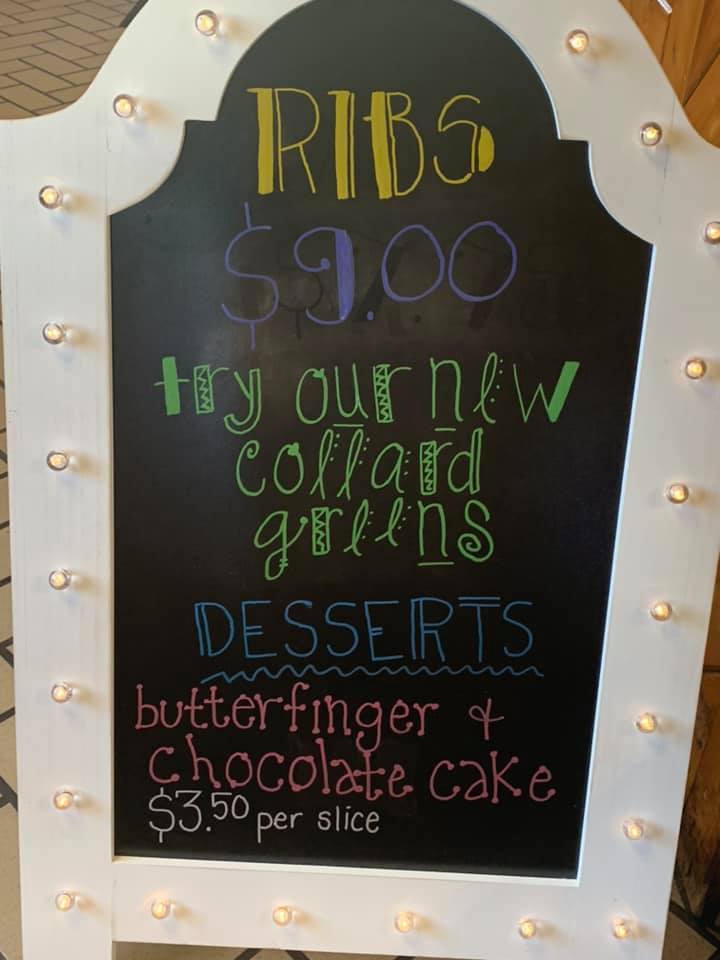 RIBS
$9.00
try our new
collard
greens
DESSERTS
butterfinger &
chocolate cake
$3.50 per slice